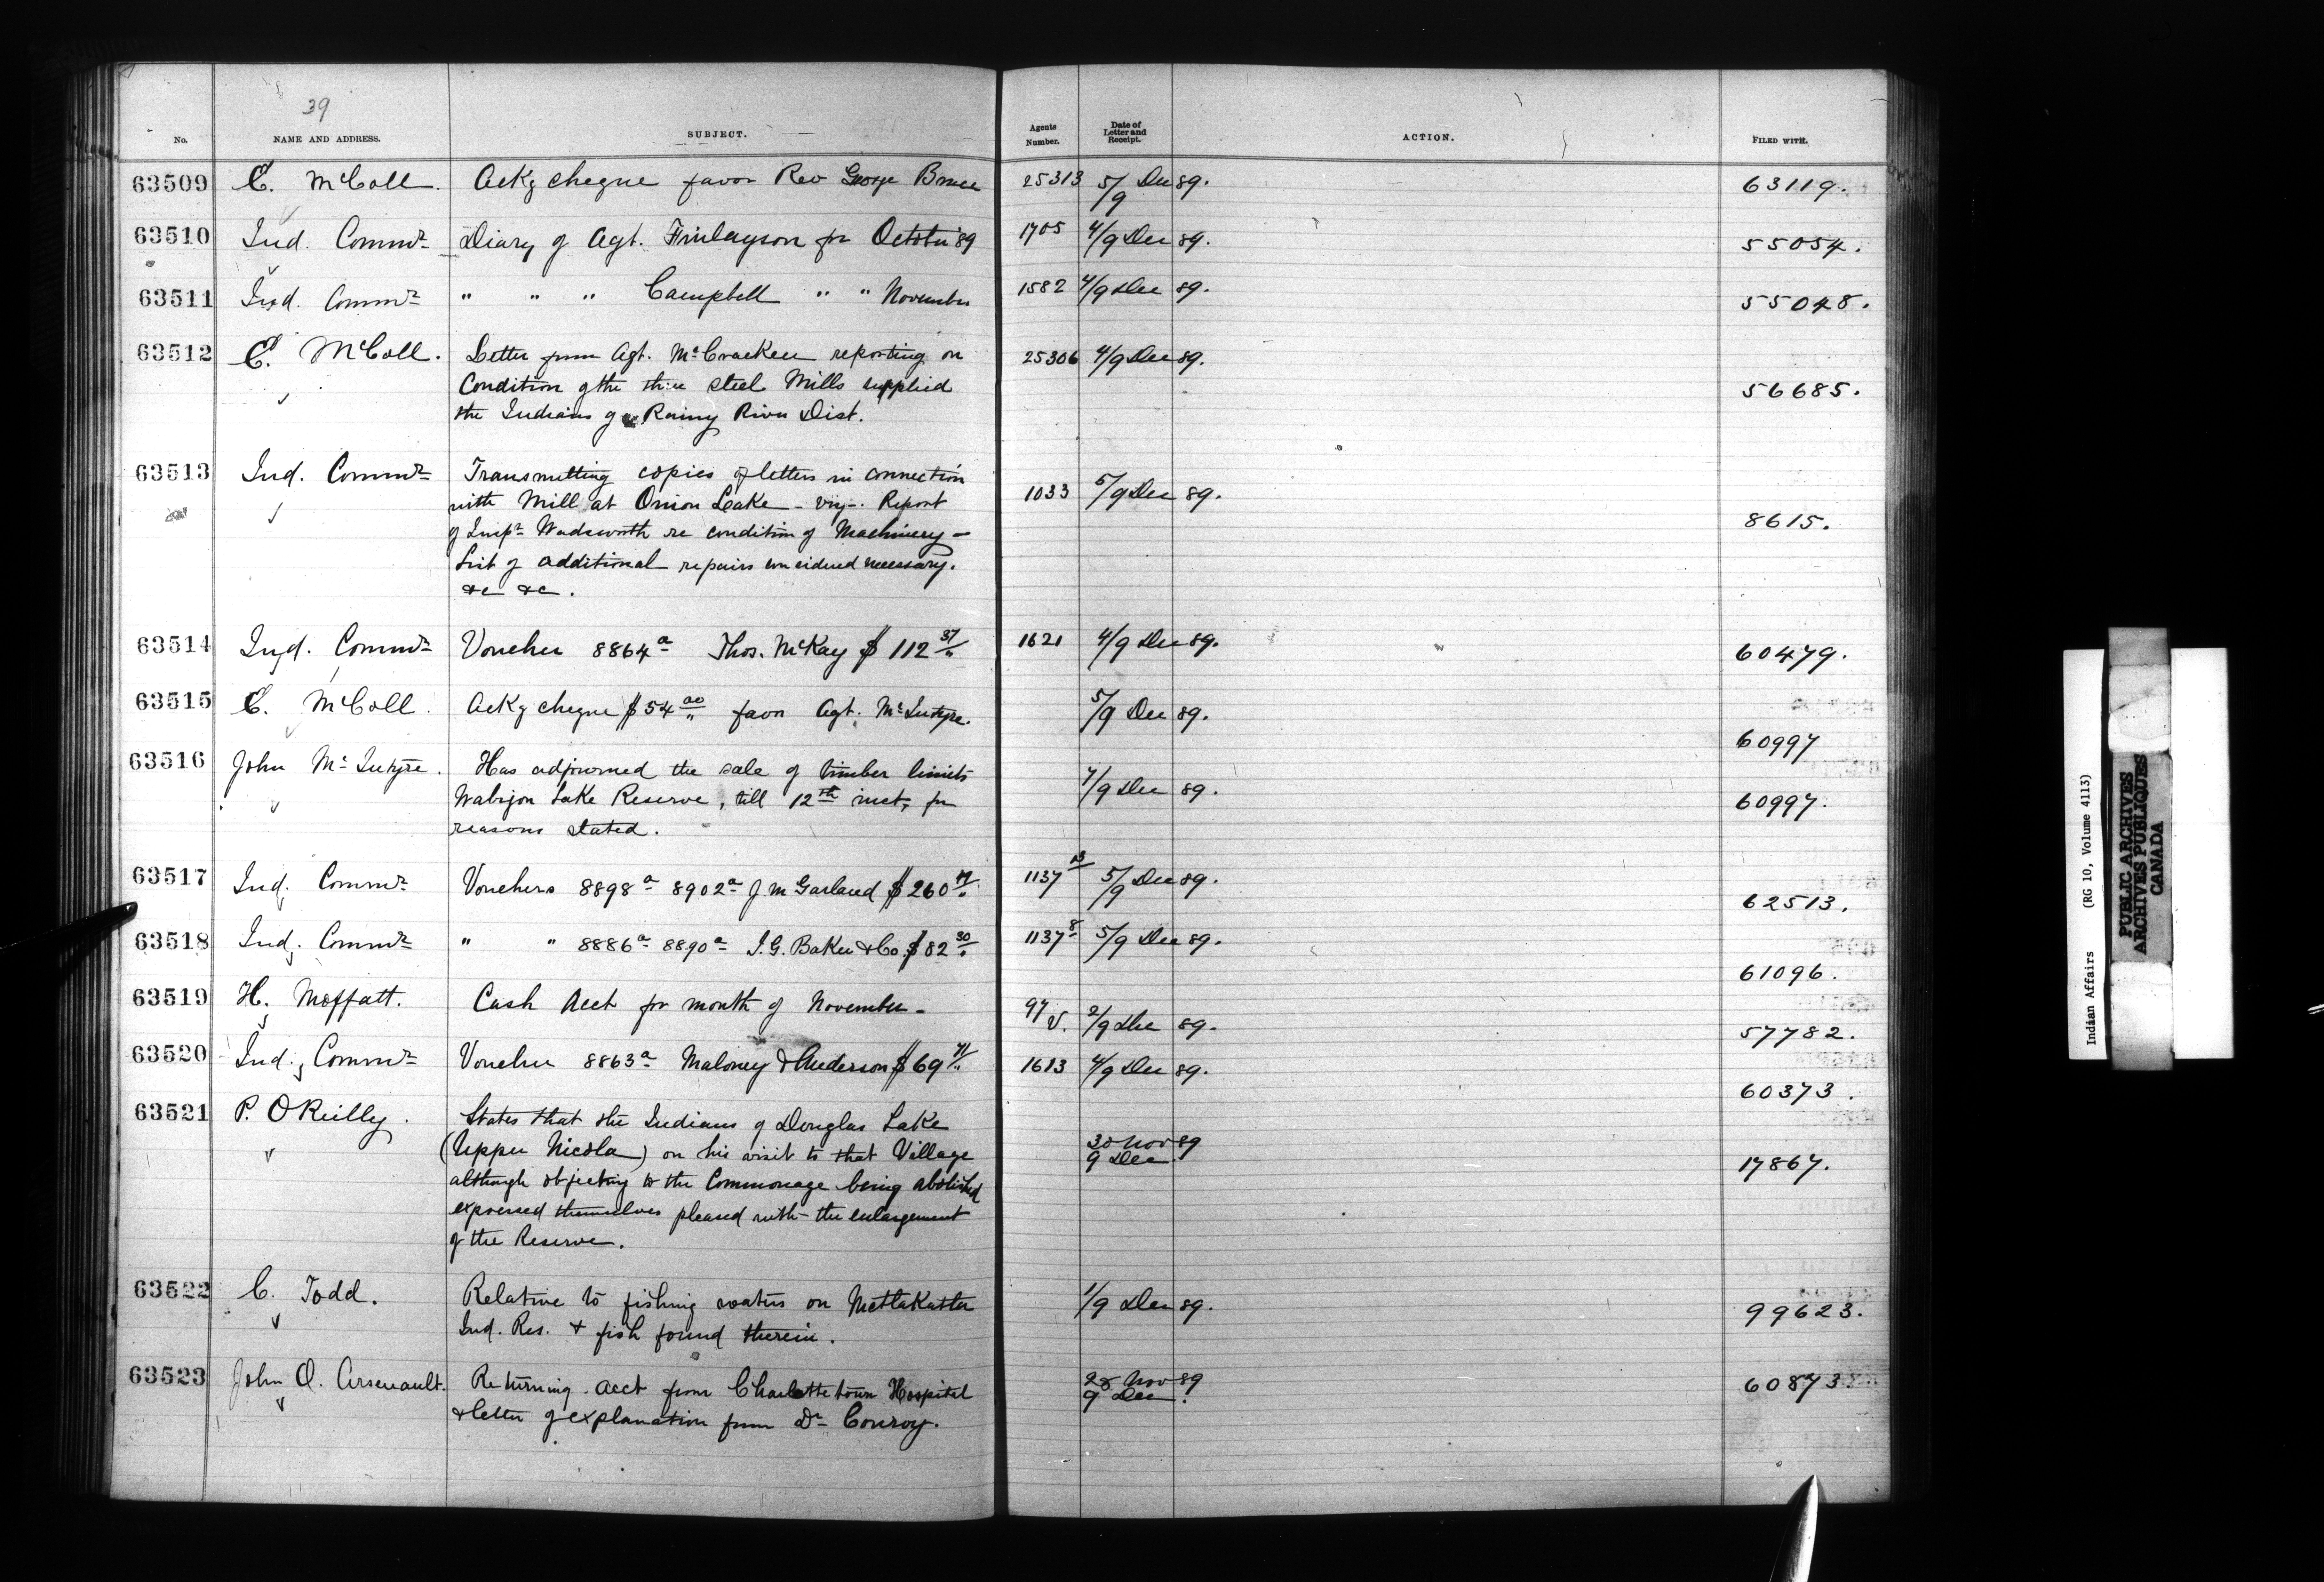 39
No. NAME AND ADDRESS. SUBJECT. Agents Number. Date of Letter and Receipt. ACTION. FILED WITH.
63509 E. McColl. Ackg cheque favor Rev George Bruce 25313 5/9 Dec 89. 63119.
63510 Ind. Commr Diary of Agt. Finlayson for October '89 1705 4/9 Dec 89. 55054.
63511 Ind. Commr " " " Campbell " " November 1582 4/9 Dec 89. 55048.
63512 E. McColl. Letter from Agt. McCracken reporting on 25306 4/9 Dec 89.
Condition of the three steel Mills supplied 56685.
the Indians of Rainy River Dist.
63513 Ind. Commr Transmitting copies of letters in connection
with Mill at Onion Lake - viz -. Report 1033 5/9 Dec 89.
of Inspr Wadsworth re condition of Machinery - 8615.
List of additional repairs considered necessary.
&c &c.
63514 Ind. Commr Voucher 8864a Thos. McKay $112 37/" 1621 4/9 Dec 89. 60479.
63515 E. McColl. Ackg cheque $54 00/" favor Agt. McIntyre. 5/9 Dec 89. 60997
63516 John McIntyre. Has adjourned the sale of timber limits
Wabigon Lake Reserve, till 12th inst, for 7/9 Dec 89. 60997.
reasons stated.
63517 Ind. Commr Vouchers 8898a 8902a J. M Garland $260 1137 13 5/9 Dec 89. 62513.
63518 Ind. Commr " " 8886a 8890a I. G. Baker & Co. $82 30/" 1137 8 5/9 Dec 89. 61096.
63519 H. Moffatt. Cash Acct for month of November - 97/V. 2/9 Dec 89. 57782.
63520 Ind. Commr Voucher 8863a Maloney & Anderson $69 71/" 1613 4/9 Dec 89. 60373.
63521 P. O'Reilly. States that the Indians of Douglas Lake
(Upper Nicola) on his visit to that Village 30 Nov 89 9 Dec. 17867.
although objecting to the Commonage being abolished
expressed themselves pleased with the enlargement
of the Reserve.
63522 C. Todd. Relative to fishing waters on Metlakatla 1/9 Dec 89. 99623.
Ind. Res. & fish found therein.
63523 John O. Arsenault. Returning acct from Charlottetown Hospital 28 Nov 89 9 Dec. 60873
& letter of explanation from Dr Conroy.
Indian Affairs (RG 10, Volume 4113)
PUBLIC ARCHIVES
ARCHIVES PUBLIQUES
CANADA